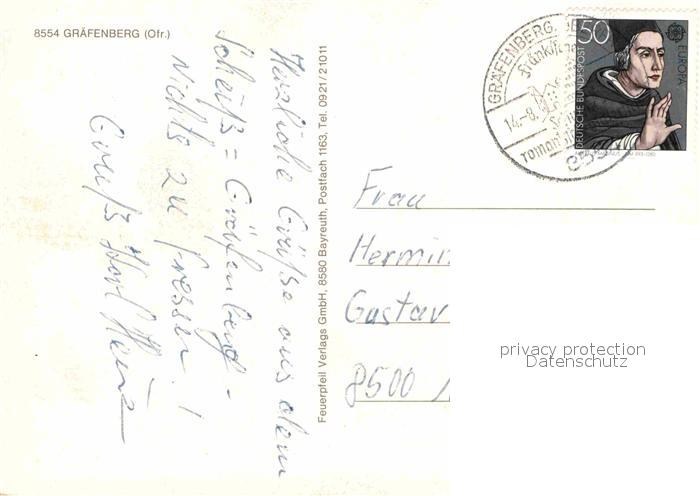 8554 GRÄFENBERG (Ofr.)
Herzliche Grüße aus dem
Scheiß = Gräfenberg -
Nichts zu fressen!
Gruß Karl Heinz
Feuerpfeil Verlags GmbH, 8580 Bayreuth, Postfach 1163, Tel. 0921/21011
GRÄFENBERG
14.-8.
50
DEUTSCHE BUNDESPOST
EUROPA
Frau
Hermin
Gustav
8500
privacy protection
Datenschutz